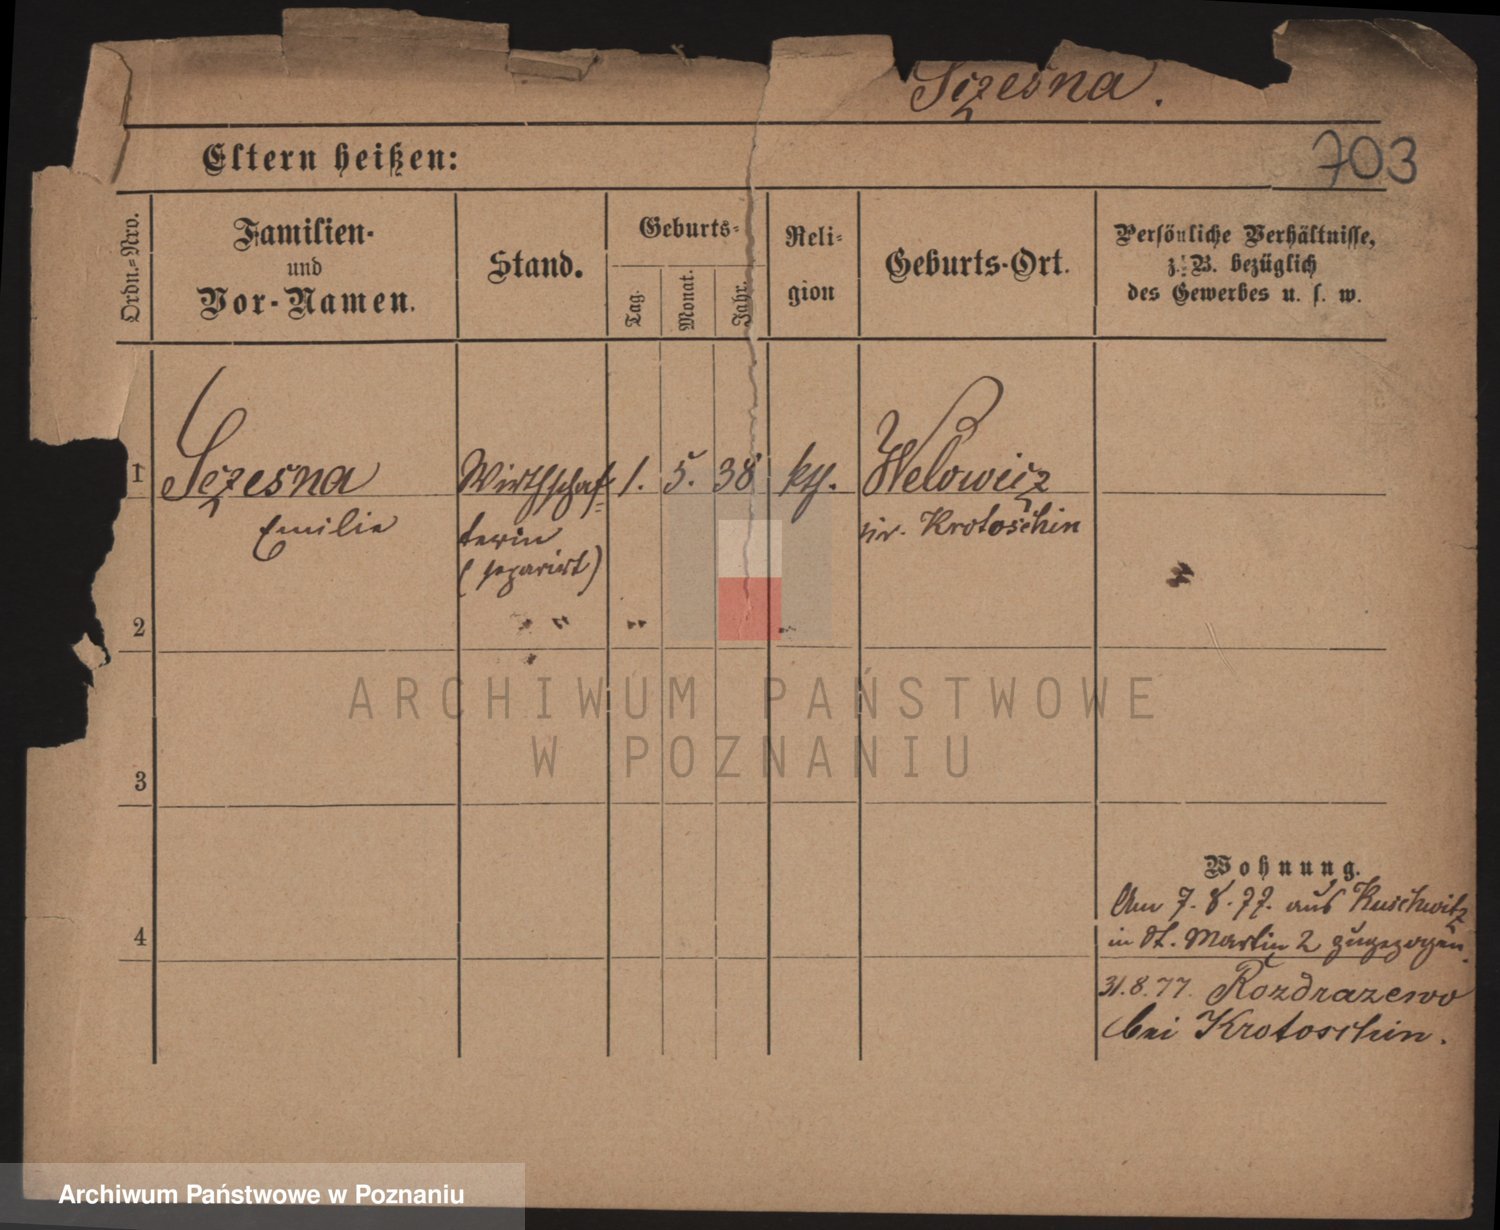 Sczesna.
703
Eltern heißen:
Ordn.-Nro.
Familien-
und
Vor-Namen.
Stand.
Geburts-
Tag.
Monat.
Jahr.
Reli-
gion
Geburts-Ort.
Persönliche Verhältnisse,
z. B. bezüglich
des Gewerbes u. s. w.
1 Sczesna Wirthschaf- 1. 5. 38 kth. Welowicz
Emilie terin Kr. Krotoschin
(separirt)
2
ARCHIWUM PAŃSTWOWE
W POZNANIU
3
Wohnung.
Am 7. 8. 77. aus Kuschwitz
4
in St. Martin 2 zugezogen.
31.8.77. Rozdrazewo
bei Krotoschin.
Archiwum Państwowe w Poznaniu